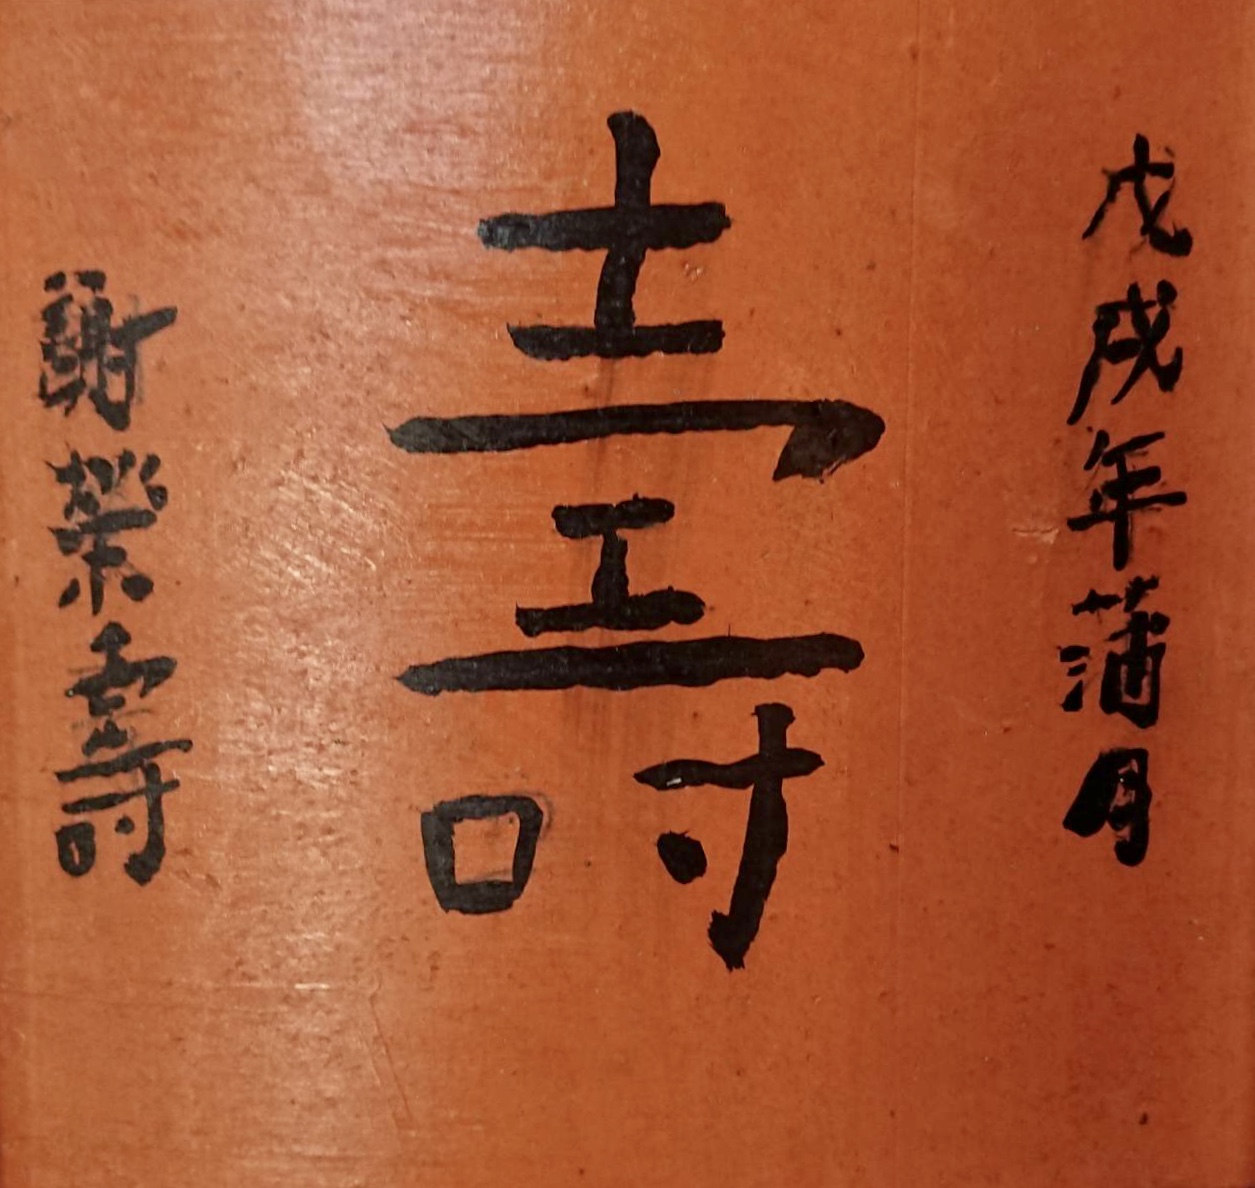 戊戌年蒲月
壽
謝榮壽